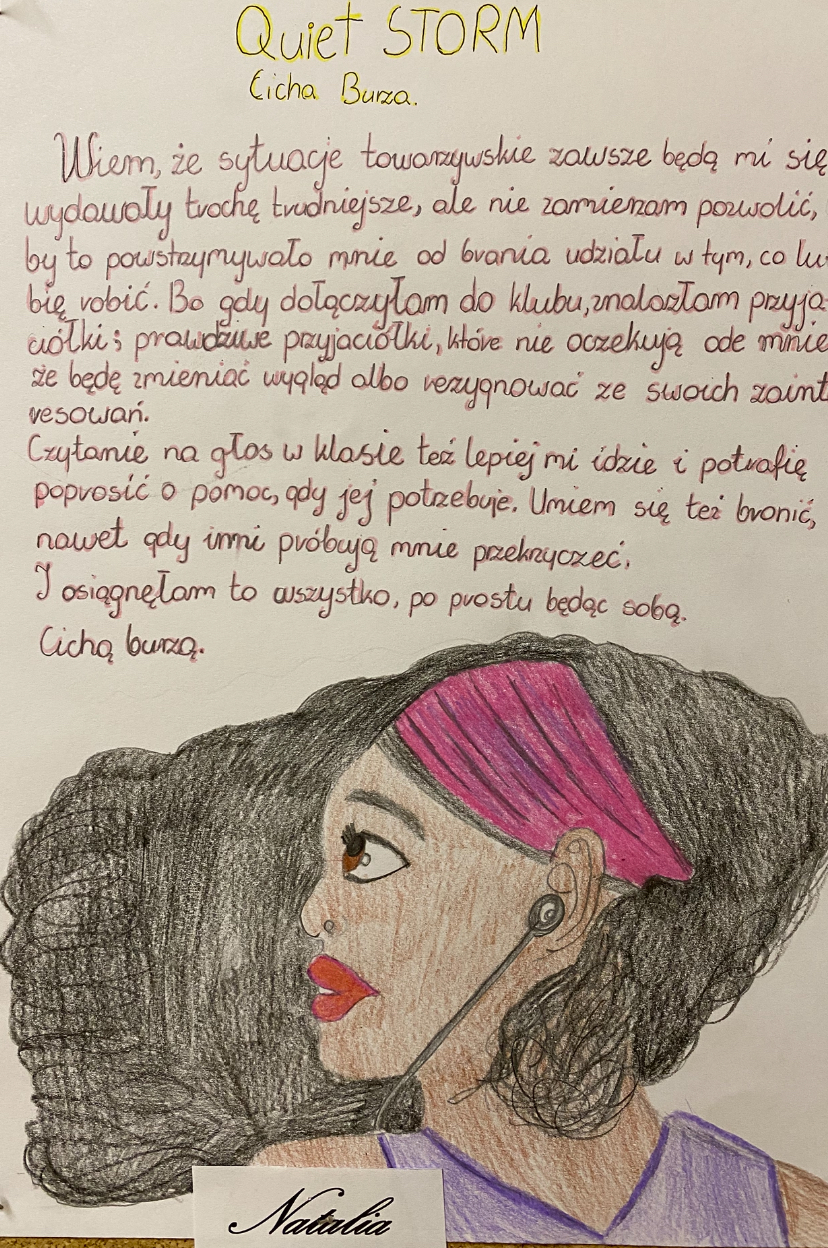 Quiet STORM
Cicha Burza.
Wiem, że sytuacje towarzywskie zawsze będą mi się
wydawały trochę trudniejsze, ale nie zamierzam pozwolić,
by to powstrzymywało mnie od brania udziału w tym, co lu-
bię robić. Bo gdy dołączyłam do klubu, znalazłam przyja-
ciółki; prawdziwe przyjaciółki, które nie oczekują ode mnie
że będę zmieniać wygląd albo rezygnować ze swoich zaint
resowań.
Czytanie na głos w klasie też lepiej mi idzie i potrafię
poprosić o pomoc, gdy jej potrzebuje. Umiem się też bronić,
nawet gdy inni próbują mnie przekrzyczeć.
I osiągnęłam to wszystko, po prostu będąc sobą.
Cichą burzą.
Natalia